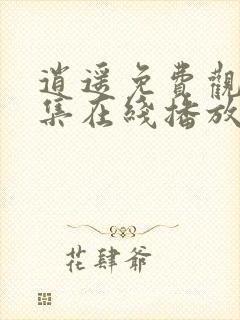 逍遥免費觀
集在綫播放
花肆爺